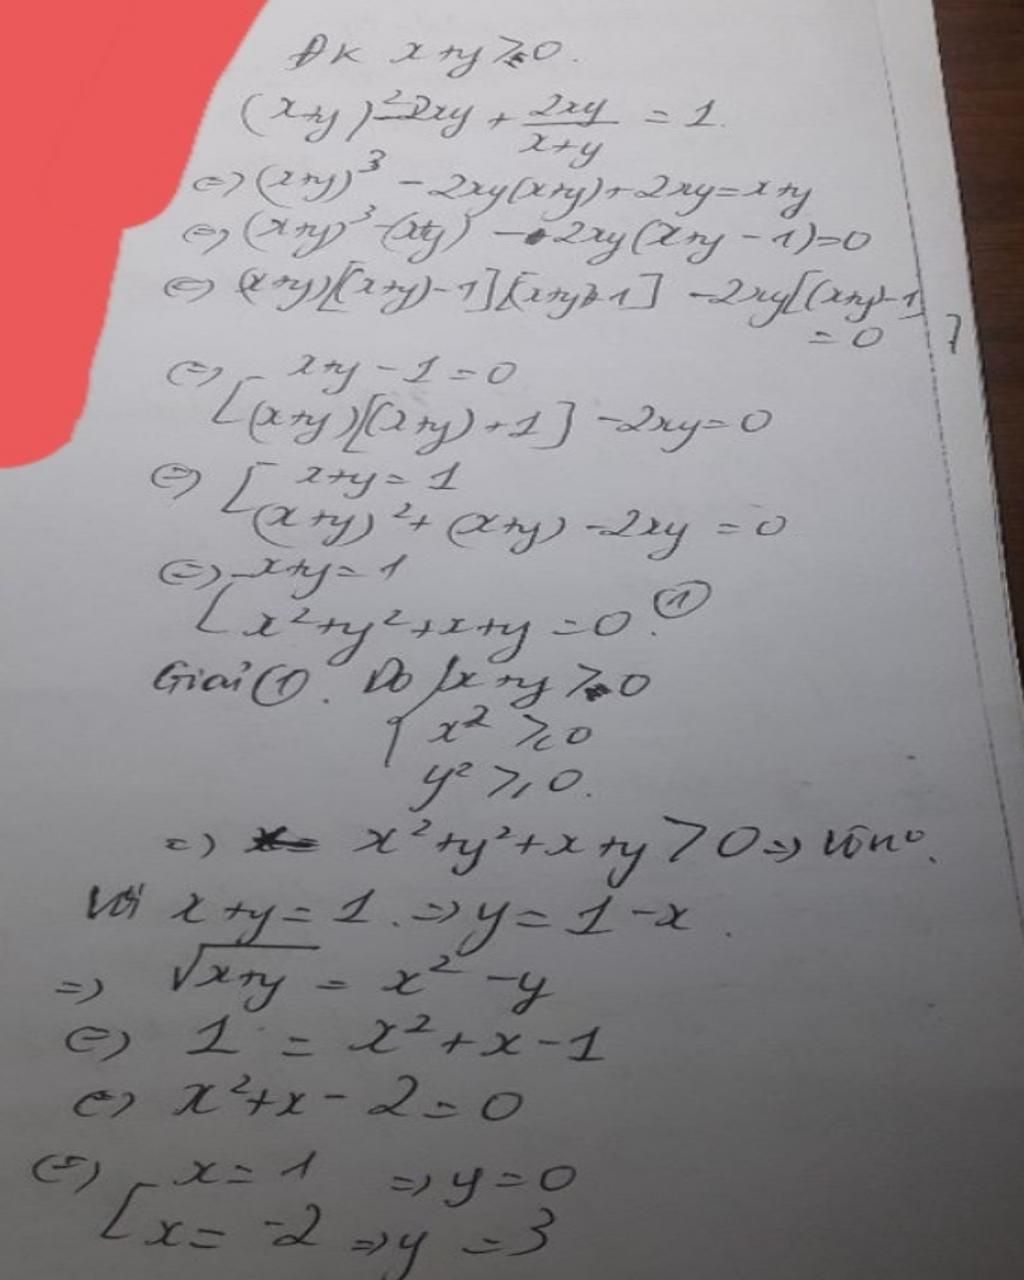 ĐK x+y ≥ 0.
(x+y)² - 2xy + 2xy/(x+y) = 1.
<=> (x+y)³ - 2xy(x+y) + 2xy = x+y
<=> (x+y)³ - (x+y) - 2xy(x+y - 1) = 0
<=> (x+y)[(x+y) - 1][(x+y)+1] - 2xy[(x+y) - 1]
= 0
<=> [ x+y - 1 = 0
[ (x+y)[(x+y) + 1] - 2xy = 0
<=> [ x+y = 1
[ (x+y)² + (x+y) - 2xy = 0
<=> [ x+y = 1
[ x² + y² + x + y = 0. ①
Giải ①. Do { x + y ≥ 0
x² ≥ 0
y² ≥ 0.
=> x² + y² + x + y > 0 => vô n°.
Với x + y = 1. => y = 1 - x.
=> √(x+y) = x² - y
<=> 1 = x² + x - 1
<=> x² + x - 2 = 0
<=> [ x = 1 => y = 0
[ x = -2 => y = 3